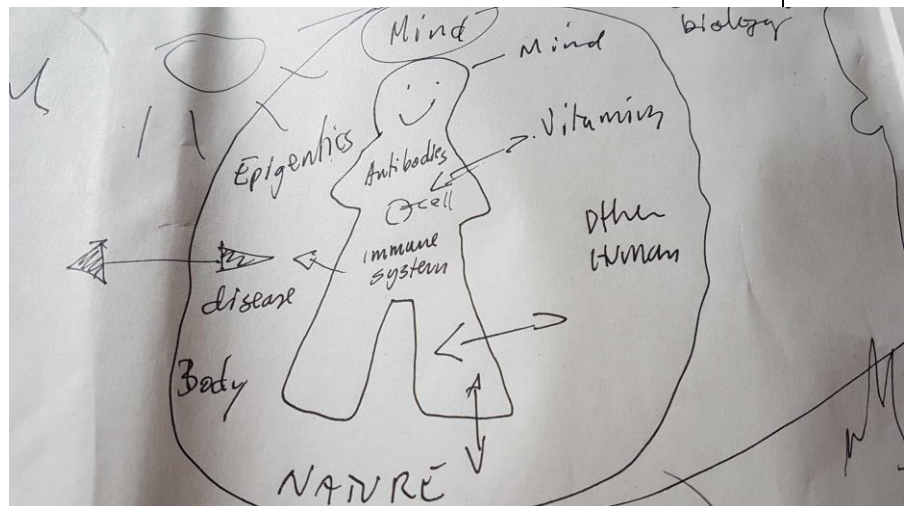 Mind
Mind
biology
Vitamins
Epigentics
Antibodies
cell
immune
system
Other
Human
disease
Body
NATURE